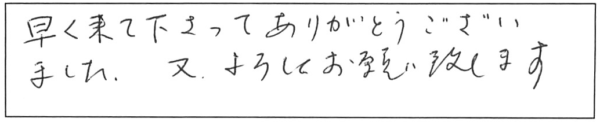 早く来て下さってありがとうござい
ました. 又. よろしくお願い致します